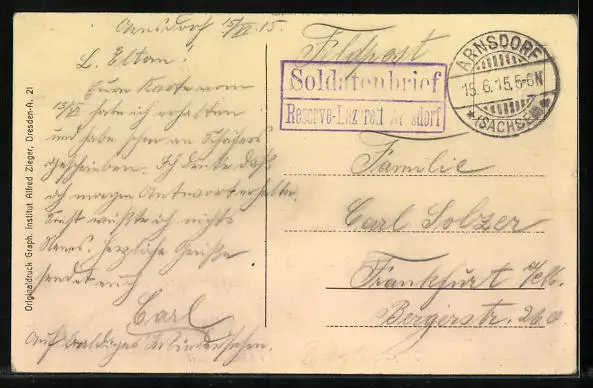 Arnsdorf 15/VI 15.
L. Eltern!
Eure Karte vom
13/VI habe ich erhalten
und habe schon an Schäfers
geschrieben. Ich denke daß
ich morgen Antwort erhalte.
Sonst wüßte ich nichts
Neues. Herzliche Grüße
sendet euch
Carl
Auf baldiges Wiedersehen.
Originaldruck Graph. Institut Alfred Zieger, Dresden-A. 21
Feldpost
Soldatenbrief
Reserve-Lazarett Arnsdorf
ARNSDORF
15.6.15.5-6N
*(SACHSEN)*
Familie
Carl Solzer
Frankfurt a/M.
Bergerstr. 260